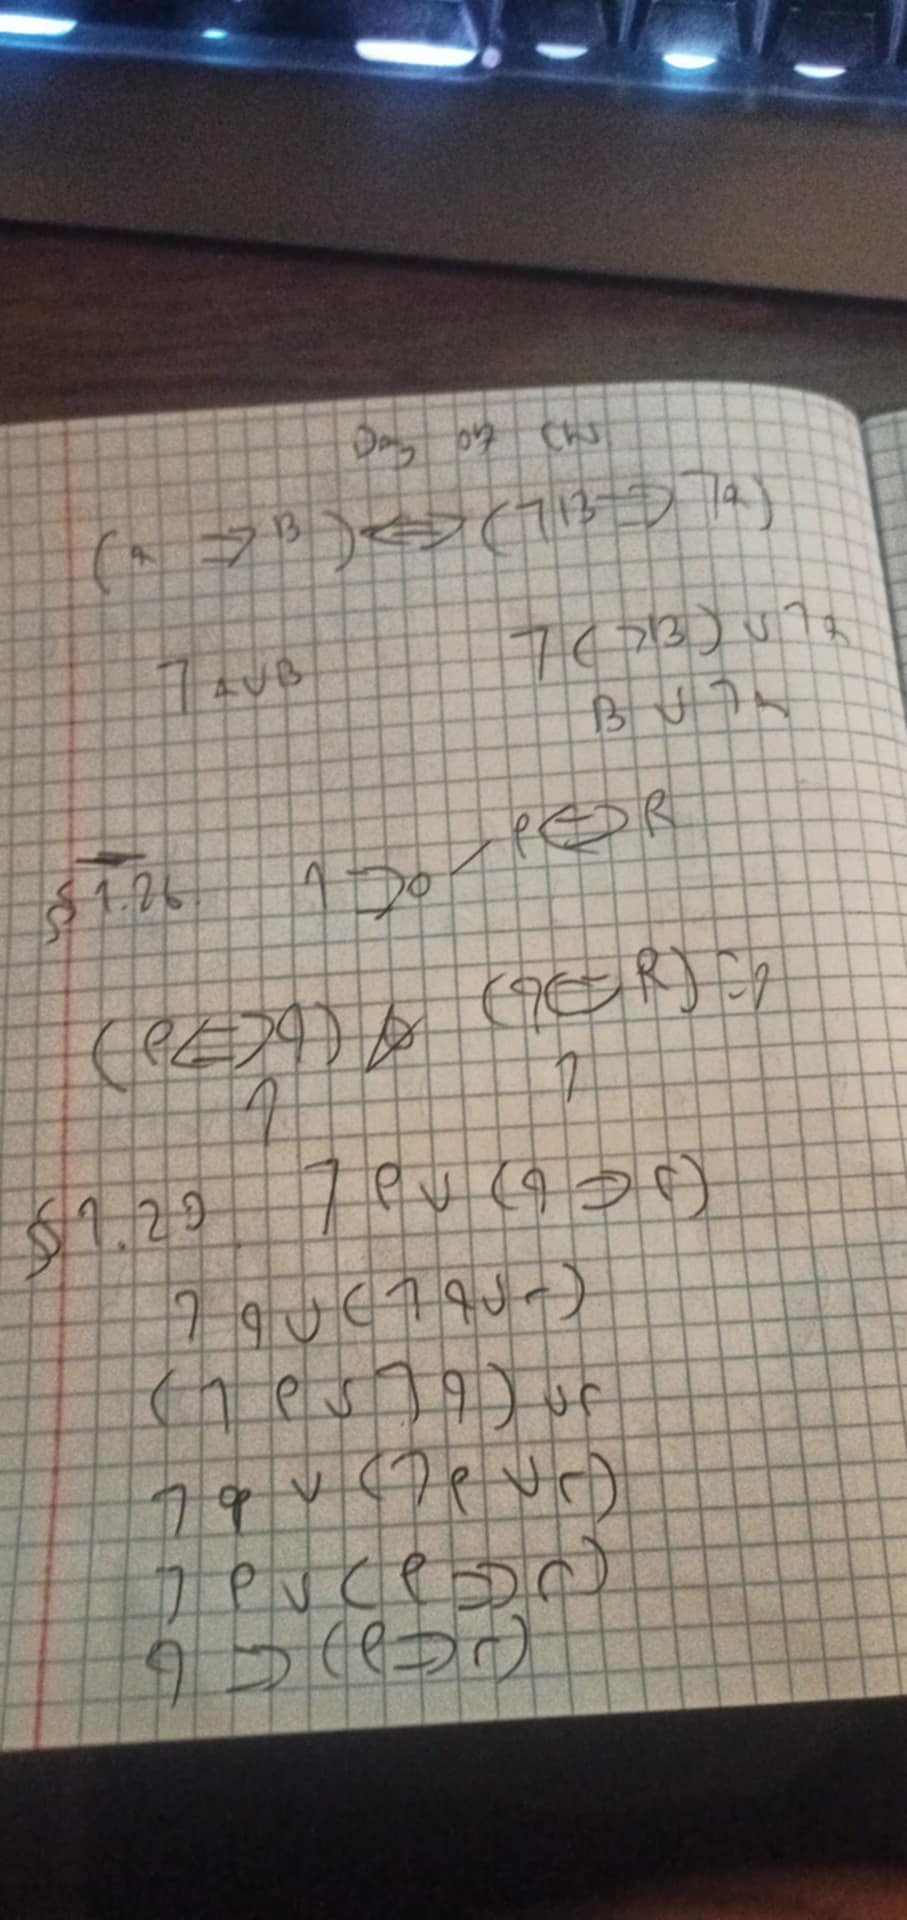 Day 07 CW
(a ⇒ B) ⇔ (¬B ⇒ ¬a)
¬a∨B ¬(¬B) ∨ ¬a
B ∨ ¬a
§1.26 1 ⇒ 0 – P⇔R
(P⇔q) (q⇔R) = 1
1 1
§1.29 ¬P∨(q⇒r)
¬q∨(¬q∨r)
(¬P∨¬q)∨r
¬q∨(¬P∨r)
¬P∨(P⇒r)
q⇒(P⇒r)